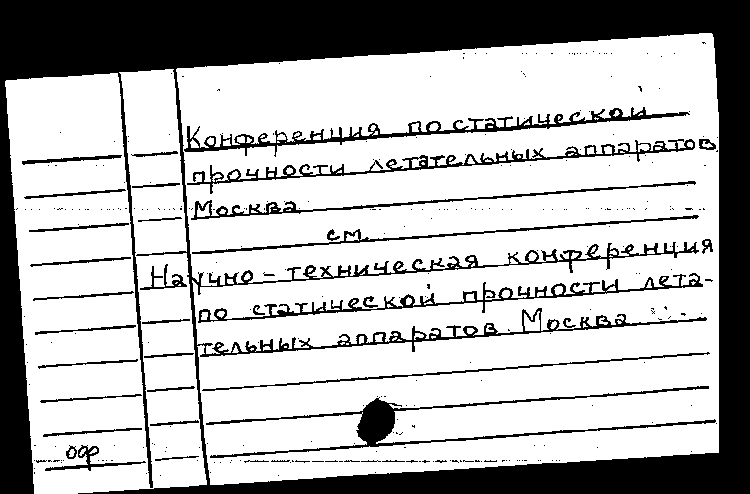 Конференция по статической
прочности летательных аппаратов
Москва
см.
Научно-техническая конференция
по статической прочности лета-
тельных аппаратов. Москва